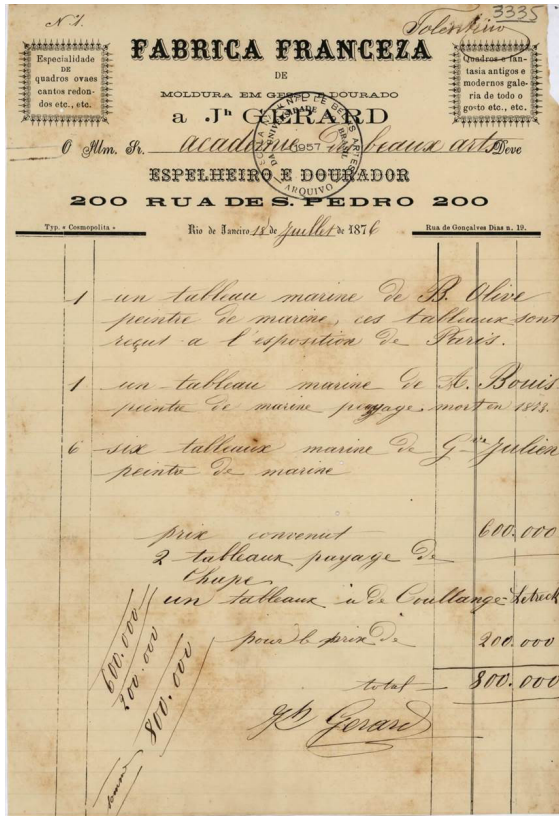 N. 1.
3335
Tolentino
Especialidade
DE
quadros ovaes
cantos redon-
dos etc., etc.
FABRICA FRANCEZA
DE
MOLDURA EM GESSO E DOURADO
a Jh GERARD
Quadros e fan-
tasia antigos e
modernos gale-
ria de todo o
gosto etc., etc.
ESCOLA NACIONAL DE BELAS ARTES
DA UNIVERSIDADE DO BRASIL
1957
ARQUIVO
O Illm. Sr. academie de beaux arts Deve
ESPELHEIRO E DOURADOR
200 RUA DE S. PEDRO 200
Typ. « Cosmopolita »
Rio de Janeiro 18 de Juillet de 1876
Rua de Gonçalves Dias n. 19.
1 un tableau marine de B. Olive
peintre de marine, ces tableaux sont
reçut a l'esposition de Paris.
1 un tableau marine de A. Bouis
peintre de marine payage mort en 1873.
6 six tableaux marine de Gve Julien
peintre de marine
prix convenut 600.000
2 tableaux payage de
Chupe
un tableaux a de Coullange-Lotreck
pour le prix de 200.000
total 800.000
Jh Gerard
600.000
200.000
800.000